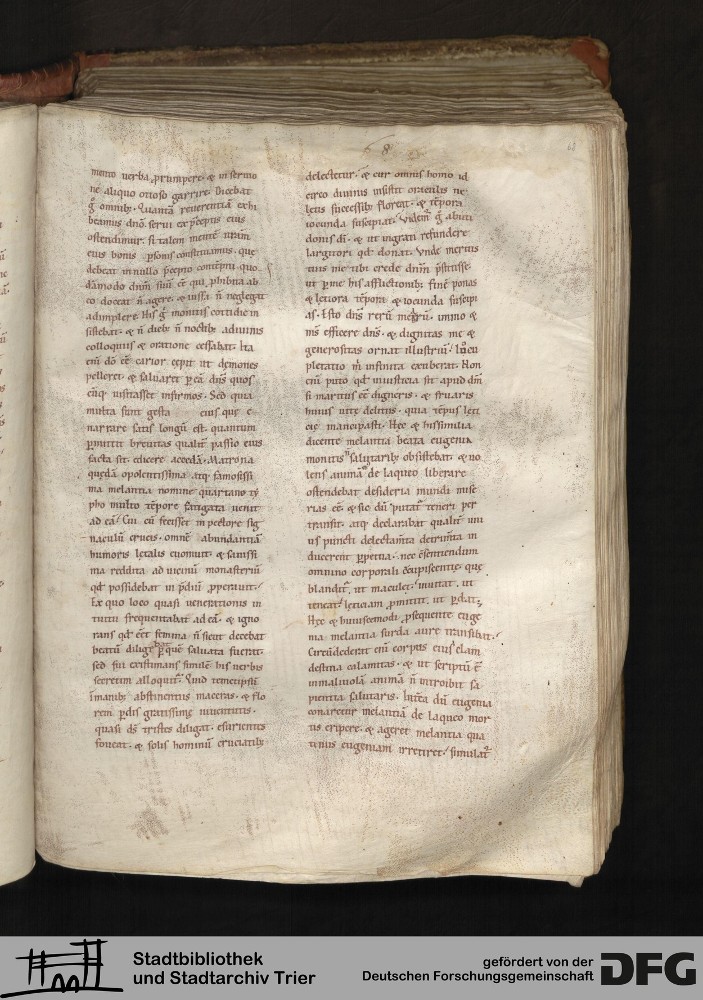 68
68
mento uerba ꝓrumpere. & in sermo
ne aliquo otioso garrire. Dicebat
g̊ omnibꝫ. Quantā reuerentiā exhi
beamus dn̄o. serui ex p̄ceptis eius
ostendimur. si talem mentē nr̄am
eius bonis constituamus. que
debeat in nullo p̄cepto contēpni quo
dāmodo dn̄m suū. cēt qui ꝓhibita ab
eo doceat n̄ agere. & iussa n̄ neglegat
adimplere. His g̊ monitis cottidie in
sistebat. & n̄ diebꝫ n̄ noctibꝫ a diuinis
colloquiis & oratione cessabat. Ita
eni dō cē carior cepit ut demones
pelleret. & saluaret ꝑ eā dn̄s quos
cūqꝫ uisitasset infirmos. Sed quia
multa sunt gesta eius que e
narrare satis longū est. quantum
ꝑmittit breuitas qualit̄ passio eius
facta sit. edicere accedā. Matrona
quedā opulentissima atqꝫ famosissi
ma melantia nomine quartano ty
pho multo tēpore fatigata uenit
ad eā. Cui cū fecisset in pectore sig
naculū crucis. omnē abundantiā
humoris letalis euomuit. & sanissi
ma reddita ad uicinū monasteriū
qd̄ possidebat in p̄diū ꝓperauit.
Ex quo loco quasi uenerationis in
tuitu frequentabat ad eā. & igno
rans qd̄ eēt femina n̄ sicut decebat
beatū diligit ꝑ quē saluata fuerat.
sed sui existimans similē his uerbis
secretim alloquit̄. Quid temetipsū
inanibꝫ abstinentiis maceras. & flo
rem ꝑdis gratissime iuuentutis.
quasi ds̄ tristes diligat. esurientes
foueat. & solis hominū cruciatibꝫ
delectetur. & cur omnis homo id
circo diuinis insistit oraculis ne
letis successibꝫ floreat. & tēpora
iocunda suscipiat. Videm̄ g̊ abuti
donis dī. & ut ingrati refundere
largitori qd̄ donat. Vnde meritis
tuis me tibi crede dn̄m p̄stitisse.
ut ꝑ me his afflictionibꝫ finē ponas
& letiora tēpora & iocunda suscipi
as. Esto dn̄s rerū mearū. immo &
ms̄ efficere dn̄s. & dignitas me &
generositas ornat illustriū. locu
pletatio m̄ infinita exuberat. Non
eni puto qd̄ iniusticia sit apud dm̄
si maritus eē digneris. & fruaris
huius uite delitiis. quia tēpus leti
cie mancipasti. Hec & his similia
dicente melantia beata eugenia
monitis salutaribꝫ obsistebat. & uo
lens animā de laqueo liberare
ostendebat desideria mundi mise
rias eē. & sic dū putat̄ teneri per
transit. atqꝫ declarabat qualit̄ uni
us puncti delectam̄ta detrim̄ta in
ducerent ꝑpetua. nec cōsentiendum
omnino corporali cōcupiscentie. que
blandit̄. ut maculet. inuitat. ut
teneat. leticiam ꝓmittit. ut ꝑdat.
Hec & huiuscemodi ꝓsequente euge
nia melantia surda aure transibat.
Circūdederat eni corpus eius clam
destina calamitas. & ut scriptū ē
in maliuolā animā n̄ introibit sa
pientia salutaris. Int̄ea dū eugenia
conaretur melantiā de laqueo mor
tis eripere. & ageret melantia qua
tinus eugeniam irretiret. simulat̄
Stadtbibliothek
und Stadtarchiv Trier
gefördert von der
Deutschen Forschungsgemeinschaft
DFG